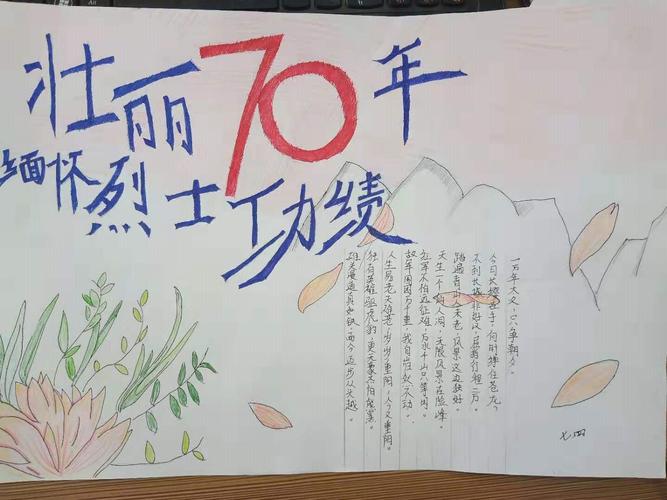 壮丽70年
缅怀烈士功绩
一万年太久,只争朝夕。
今日长缨在手,何时缚住苍龙?
不到长城非好汉,屈指行程二万。
踏遍青山人未老,风景这边独好。
天生一个仙人洞,无限风景在险峰。
红军不怕远征难,万水千山只等闲。
敌军围困万千重,我自岿然不动。
人生易老天难老,岁岁重阳,今又重阳。
独有英雄驱虎豹,更无豪杰怕熊罴。
雄关漫道真如铁,而今迈步从头越。
七.四